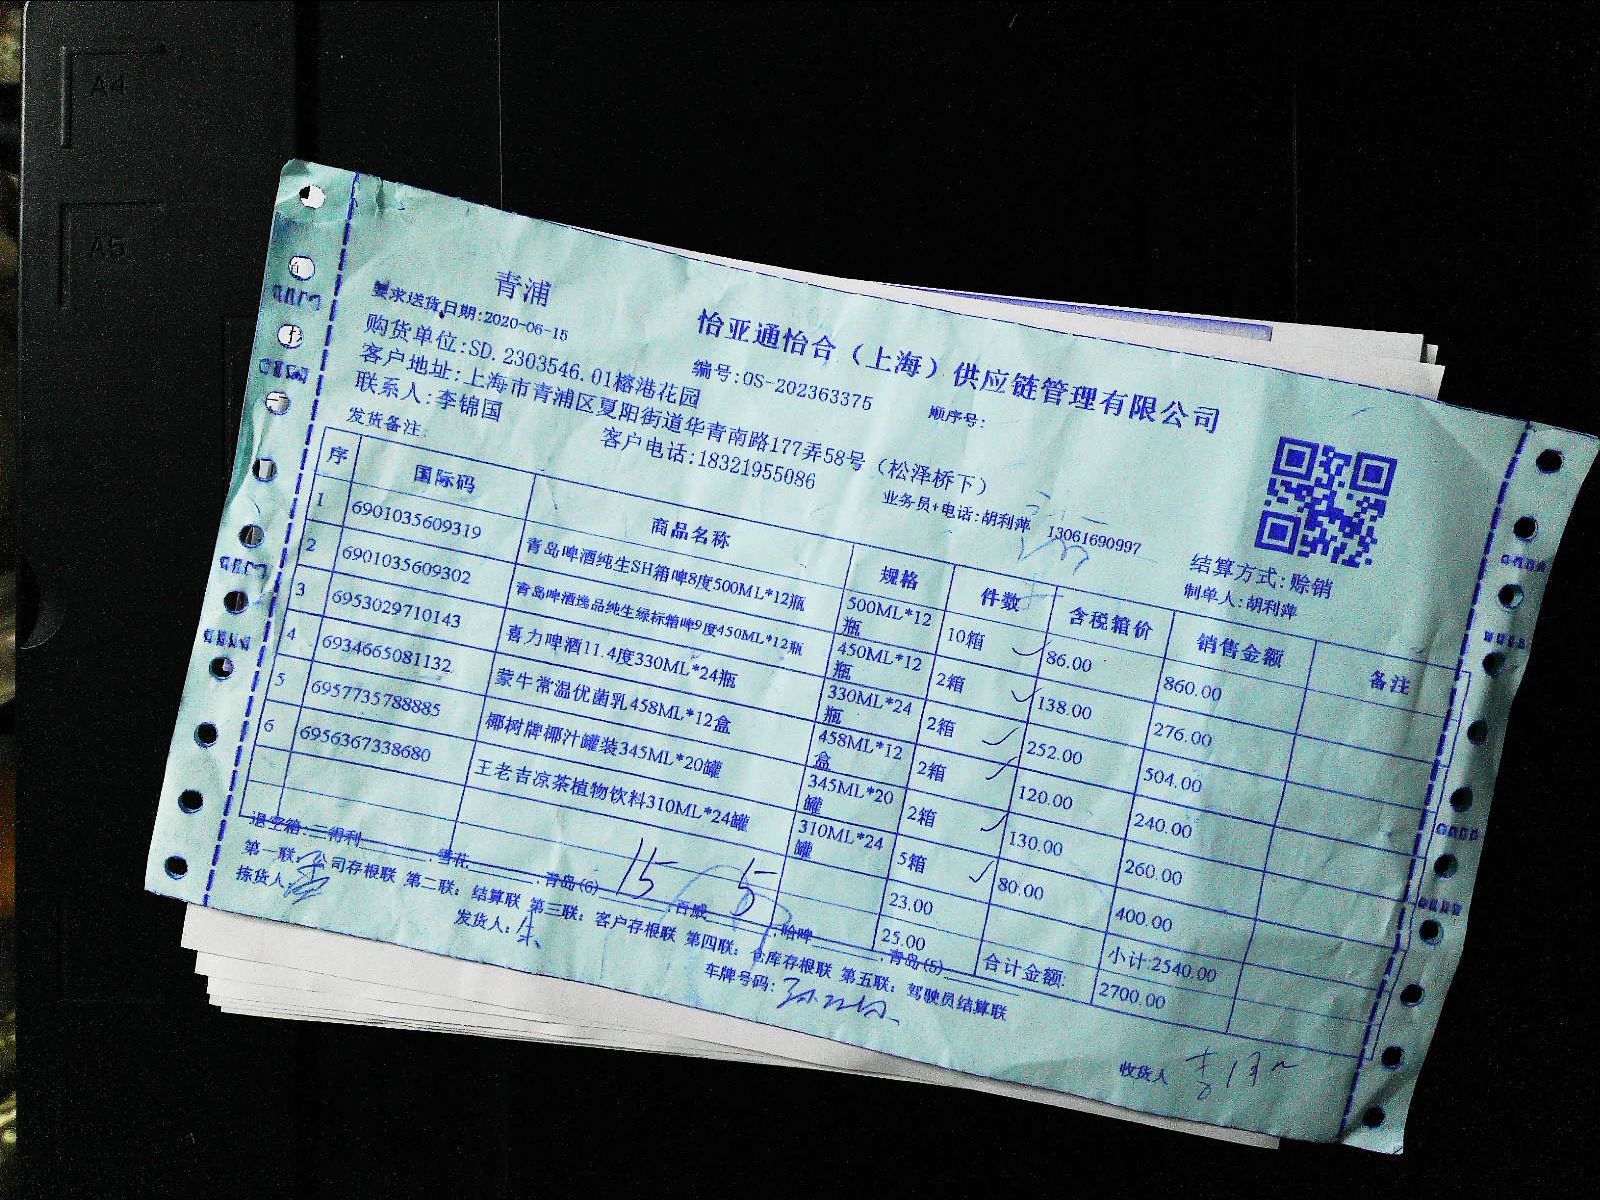 A4
A5
青浦
要求送货日期:2020-06-15
怡亚通怡合（上海）供应链管理有限公司
购货单位:SD.2303546.01榕港花园
编号:OS-202363375
顺序号:
客户地址:上海市青浦区夏阳街道华青南路177弄58号（松泽桥下）
联系人:李锦国
客户电话:18321955086
业务员+电话:胡利萍 13061690997
结算方式:赊销
发货备注:
制单人:胡利萍
序 国际码 商品名称 规格 件数 含税箱价 销售金额 备注
1 6901035609319 青岛啤酒纯生SH箱啤8度500ML*12瓶 500ML*12瓶 10箱 86.00 860.00
2 6901035609302 青岛啤酒逸品纯生绿标箱啤9度450ML*12瓶 450ML*12瓶 2箱 138.00 276.00
3 6953029710143 喜力啤酒11.4度330ML*24瓶 330ML*24瓶 2箱 252.00 504.00
4 6934665081132 蒙牛常温优菌乳458ML*12盒 458ML*12盒 2箱 120.00 240.00
5 6957735788885 椰树牌椰汁罐装345ML*20罐 345ML*20罐 2箱 130.00 260.00
6 6956367338680 王老吉凉茶植物饮料310ML*24罐 310ML*24罐 5箱 80.00 400.00
23.00 小计:2540.00
25.00 合计金额: 2700.00
退空箱:三得利 .雪花 .青岛(6) 15 .百威 5 .哈啤 .青岛(5)
第一联：公司存根联 第二联：结算联 第三联：客户存根联 第四联：仓库存根联 第五联：驾驶员结算联
拣货人
发货人:
车牌号码:
收货人